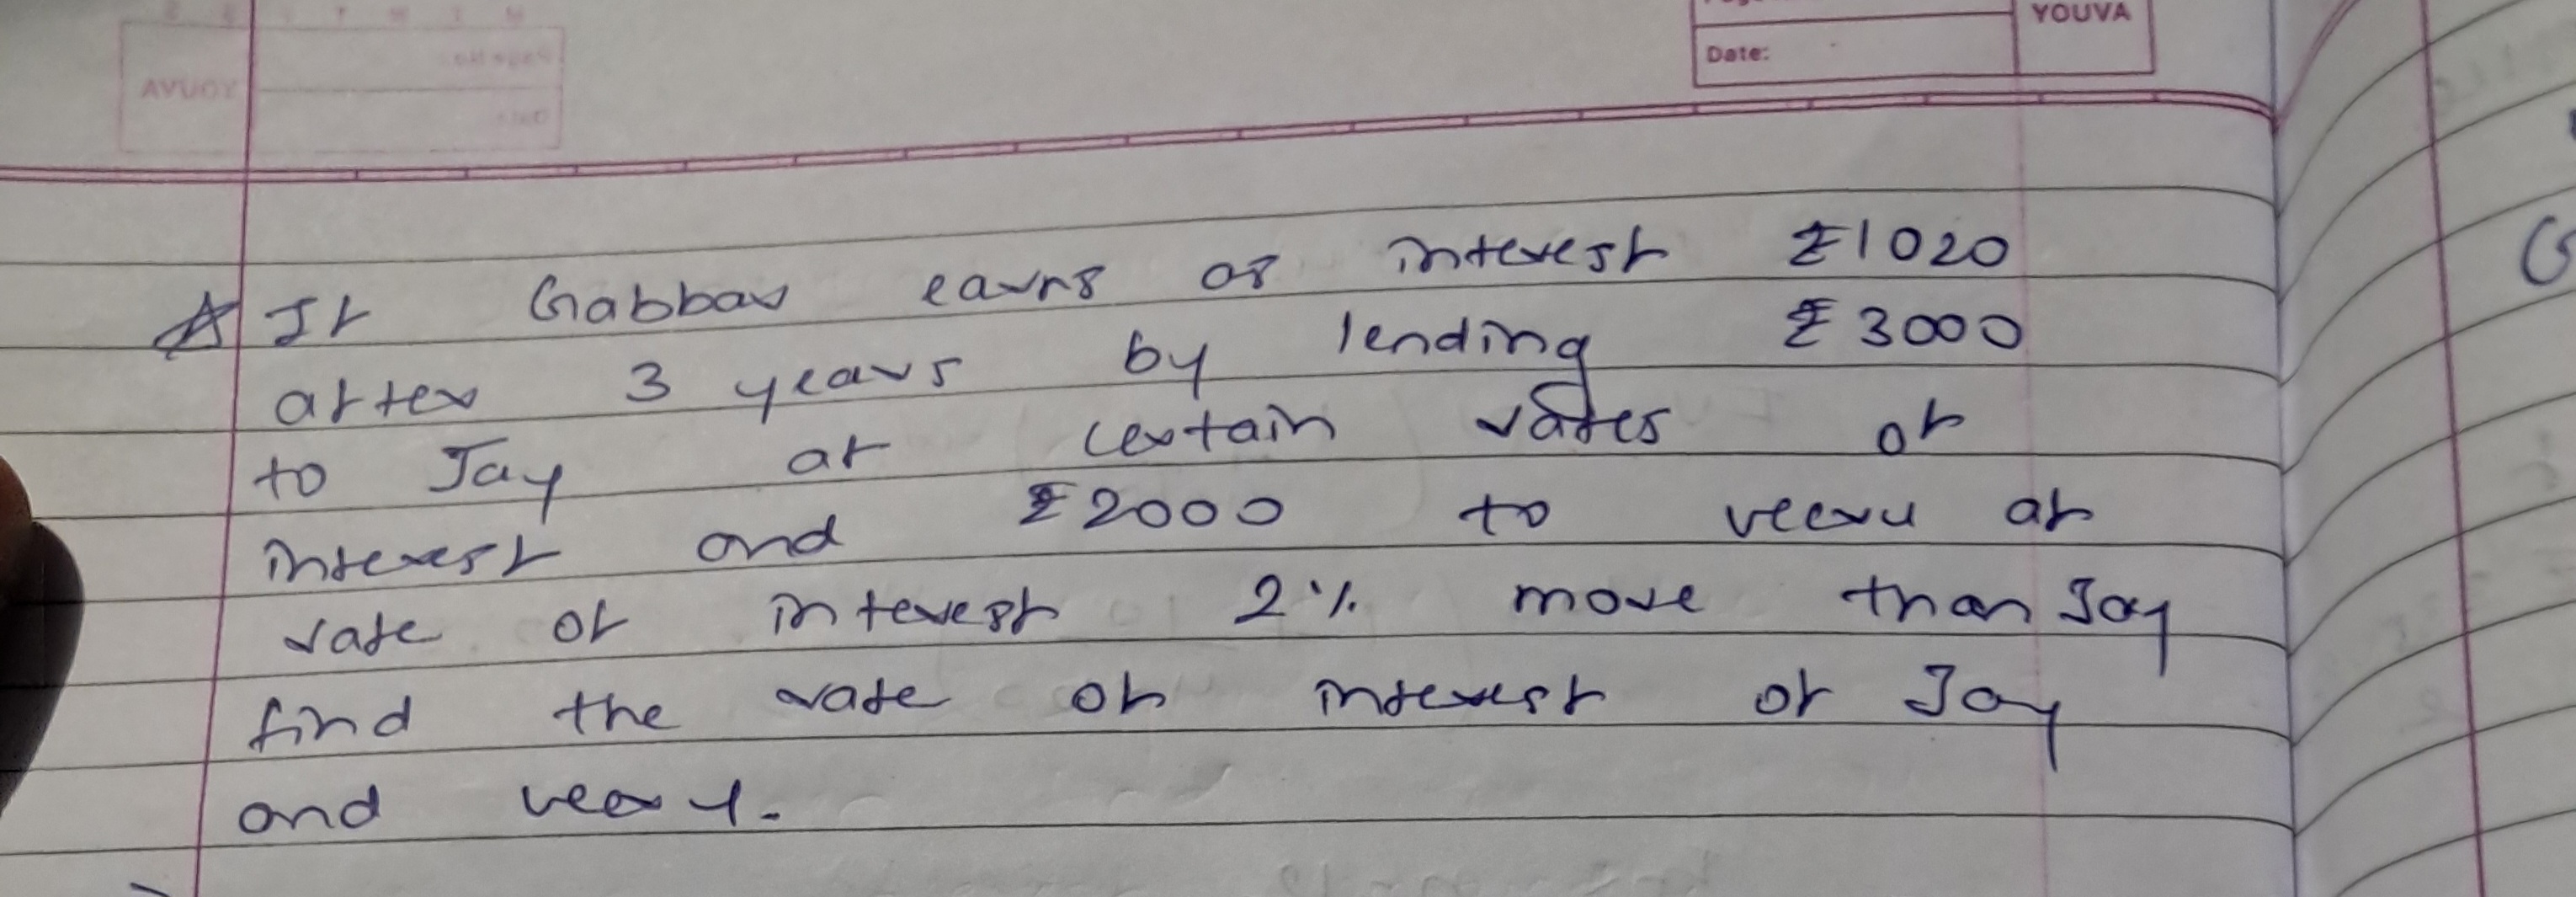 YOUVA
Date:
If Gabbar earns as interest ₹1020
after 3 years by lending ₹3000
to Jay at certain rates of
interest and ₹2000 to veeru at
rate of interest 2% more than Jay
find the rate of interest of Jay
and veeru.